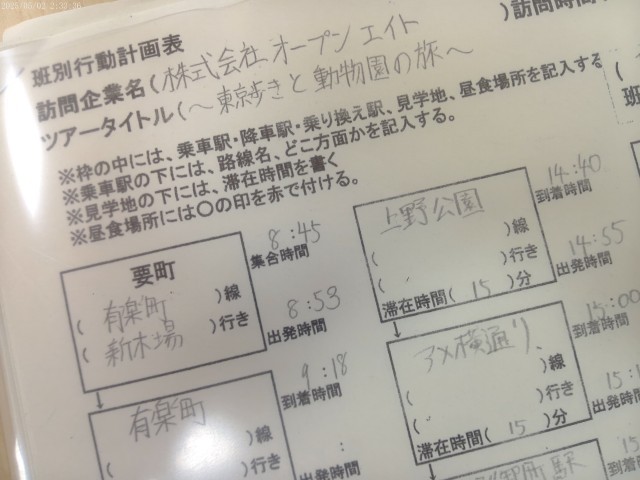 2025/06/02 2:38:06
班別行動計画表
訪問企業名(株式会社オープンエイト
)訪問時間
ツアータイトル(～東京歩きと動物園の旅～
※枠の中には、乗車駅・降車駅・乗り換え駅、見学地、昼食場所を記入する
※乗車駅の下には、路線名、どこ方面かを記入する。
※見学地の下には、滞在時間を書く
※昼食場所には○の印を赤で付ける。
班
8:45
集合時間
要町
(有楽町)線
(新木場)行き
8:53
出発時間
9:18
到着時間
有楽町
)線
( )行き
:
出発時間
14:40
到着時間
上野公園
( )線
( )行き
滞在時間(15)分
14:55
出発時間
15:00
到着時間
アメ横通り
( )線
( )行き
滞在時間(15)分
15:1
出発時間
御町駅
15